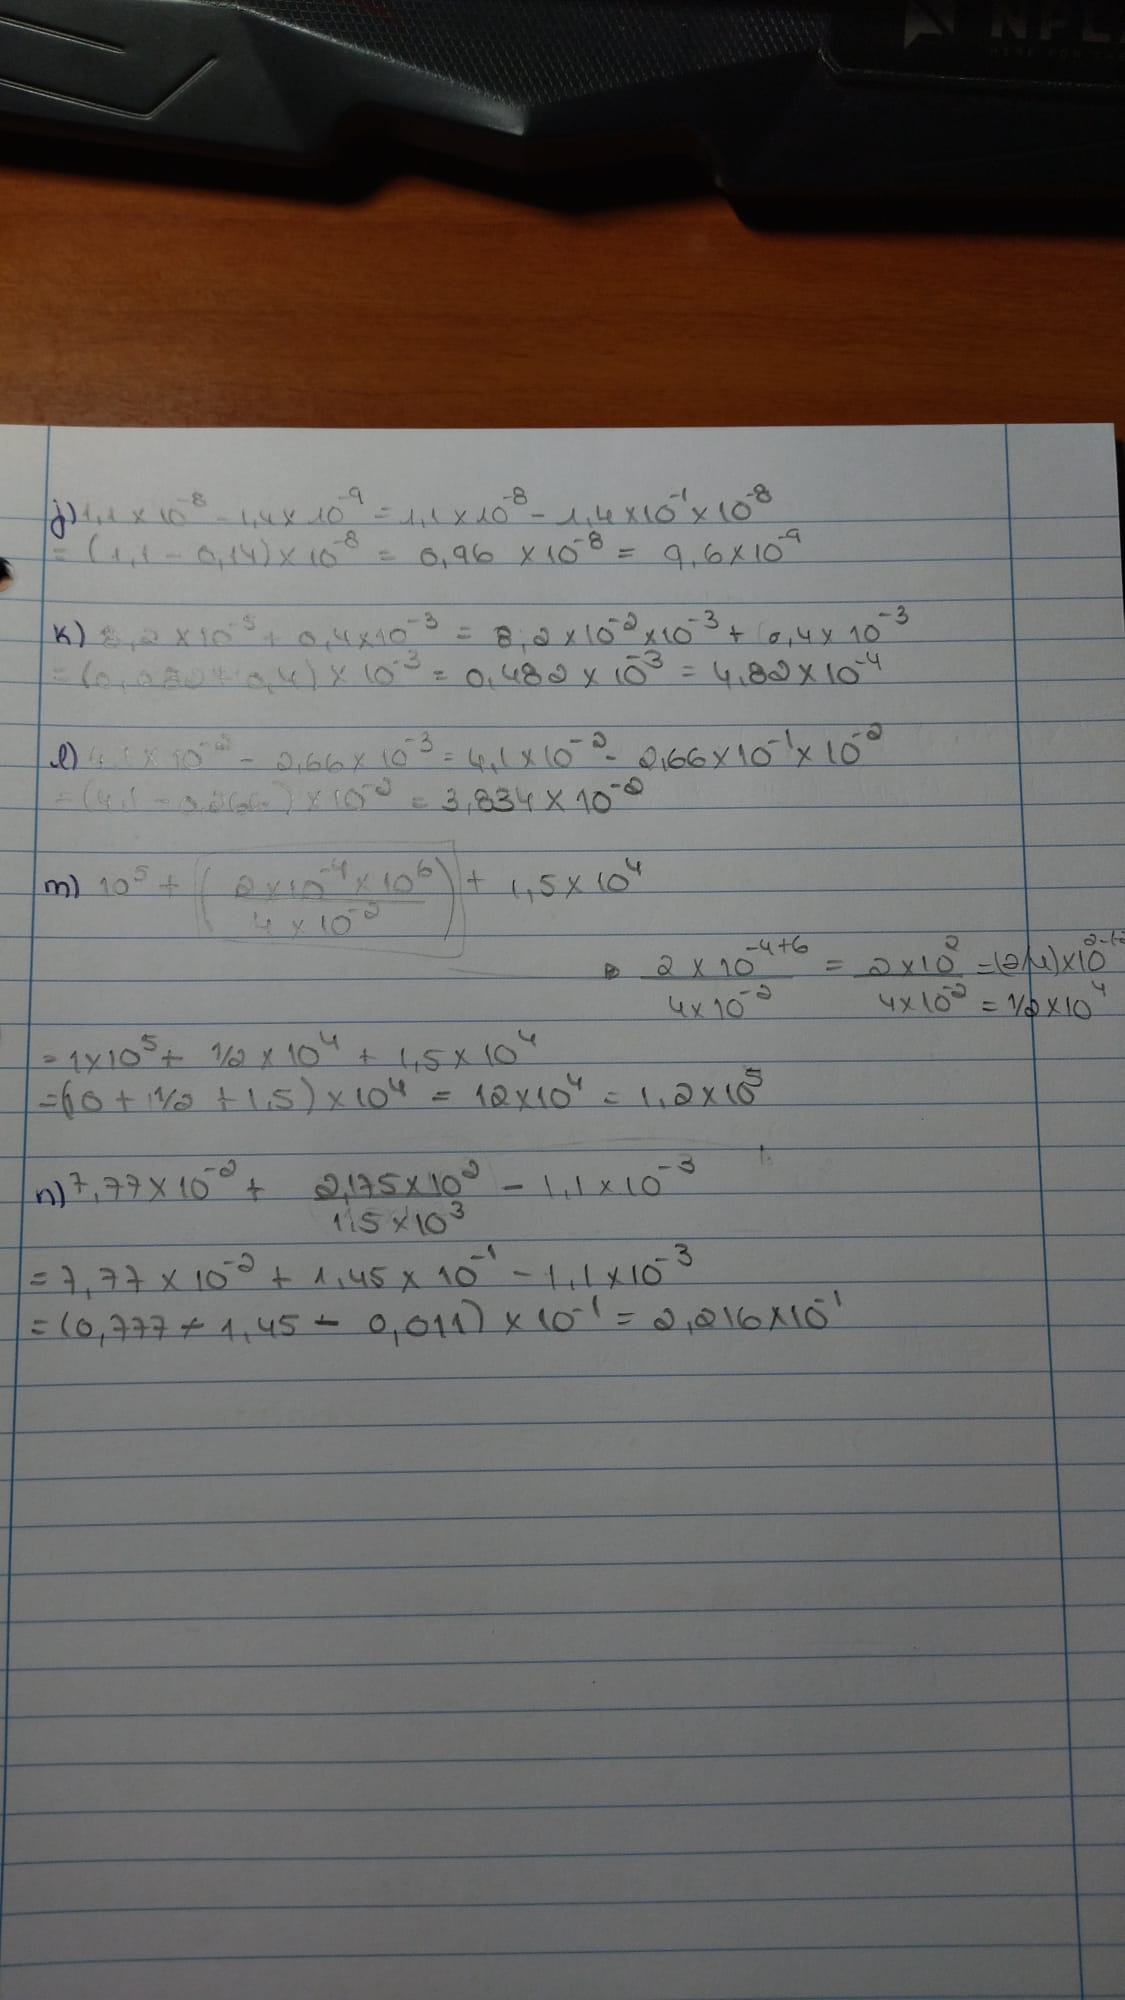 NPL
j) 1,1 × 10⁻⁸ - 1,4 × 10⁻⁹ = 1,1 × 10⁻⁸ - 1,4 × 10⁻¹ × 10⁻⁸
= (1,1 - 0,14) × 10⁻⁸ = 0,96 × 10⁻⁸ = 9,6 × 10⁻⁹
k) 8,2 × 10⁻⁵ + 0,4 × 10⁻³ = 8,2 × 10⁻² × 10⁻³ + 0,4 × 10⁻³
= (0,082 + 0,4) × 10⁻³ = 0,482 × 10⁻³ = 4,82 × 10⁻⁴
l) 4,1 × 10⁻² - 2,66 × 10⁻³ = 4,1 × 10⁻² - 2,66 × 10⁻¹ × 10⁻²
= (4,1 - 0,266) × 10⁻² = 3,834 × 10⁻²
m) 10⁵ + ( 2 × 10⁻⁴ × 10⁶ ) + 1,5 × 10⁴
4 × 10⁻²
2 × 10⁻⁴⁺⁶ = 2 × 10² = (2/4) × 10
4 × 10⁻² 4 × 10⁻² = 1/2 × 10⁴
= 1 × 10⁵ + 1/2 × 10⁴ + 1,5 × 10⁴
= (10 + 1/2 + 1,5) × 10⁴ = 12 × 10⁴ = 1,2 × 10⁵
n) 7,77 × 10⁻² + 2,175 × 10² - 1,1 × 10⁻³
1,5 × 10³
= 7,77 × 10⁻² + 1,45 × 10⁻¹ - 1,1 × 10⁻³
= (0,777 + 1,45 - 0,011) × 10⁻¹ = 2,216 × 10⁻¹